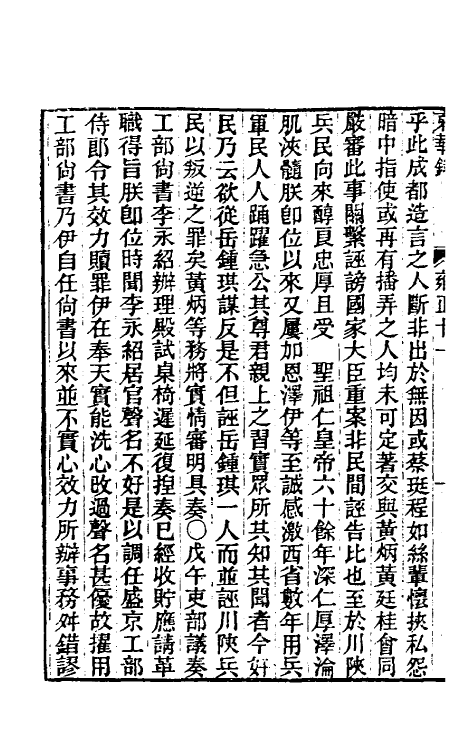 東華錄　雍正十一　一
乎此成都造言之人斷非出於無因或蔡珽程如絲輩懷挾私怨
暗中指使或再有播弄之人均未可定著交與黃炳黃廷桂會同
嚴審此事關繫誣謗國家大臣重案非民間誣告比也至於川陝
兵民向來醇良忠厚且受　聖祖仁皇帝六十餘年深仁厚澤淪
肌浹髓朕卽位以來又屢加恩澤伊等至誠感激西省數年用兵
軍民人人踊躍急公其尊君親上之習實眾所共知共聞者今奸
民乃云欲從岳鍾琪謀反是不但誣岳鍾琪一人而並誣川陝兵
民以叛逆之罪矣黃炳等務將實情審明具奏○戊午吏部議奏
工部尙書李永紹辦理殿試桌椅遲延復捏奏已經收貯應請革
職得旨朕卽位時聞李永紹居官聲名不好是以調任盛京工部
侍郎令其效力贖罪伊在奉天實能洗心改過聲名甚優故擢用
工部尙書乃伊自任尙書以來並不實心效力所辦事務舛錯謬